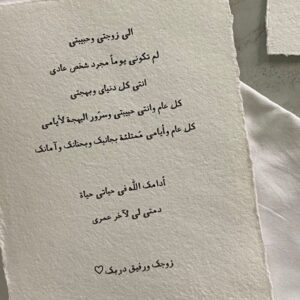 الى زوجتي وحبيبتي
لم تكوني يوماً مجرد شخص عادي
انتي كل دنياي وبهجتي
كل عام وانتي حبيبتي وسرور البهجة لأيامي
كل عام وأيامي ممتلئة بجانبك وبحنانك وآمانك
أدامك الله في حياتي حياة
دمتي لي لآخر عمري
زوجك ورفيق دربك♡